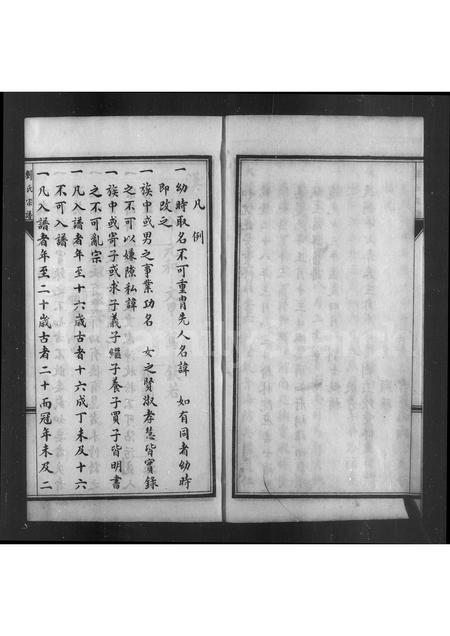 凡例
一幼時取名不可重胄先人名諱 如有同者幼時
即改之
一族中或男之事業功名 女之賢淑孝慧皆實錄
之不可以嫌隙私諱
一族中或寄子或求子義子繼子養子買子皆明書
之不可亂宗
一凡入譜者年至十六歲古者十六成丁未及十六
不可入譜
一凡入譜者年至二十歲古者二十而冠年未及二
劉氏宗譜